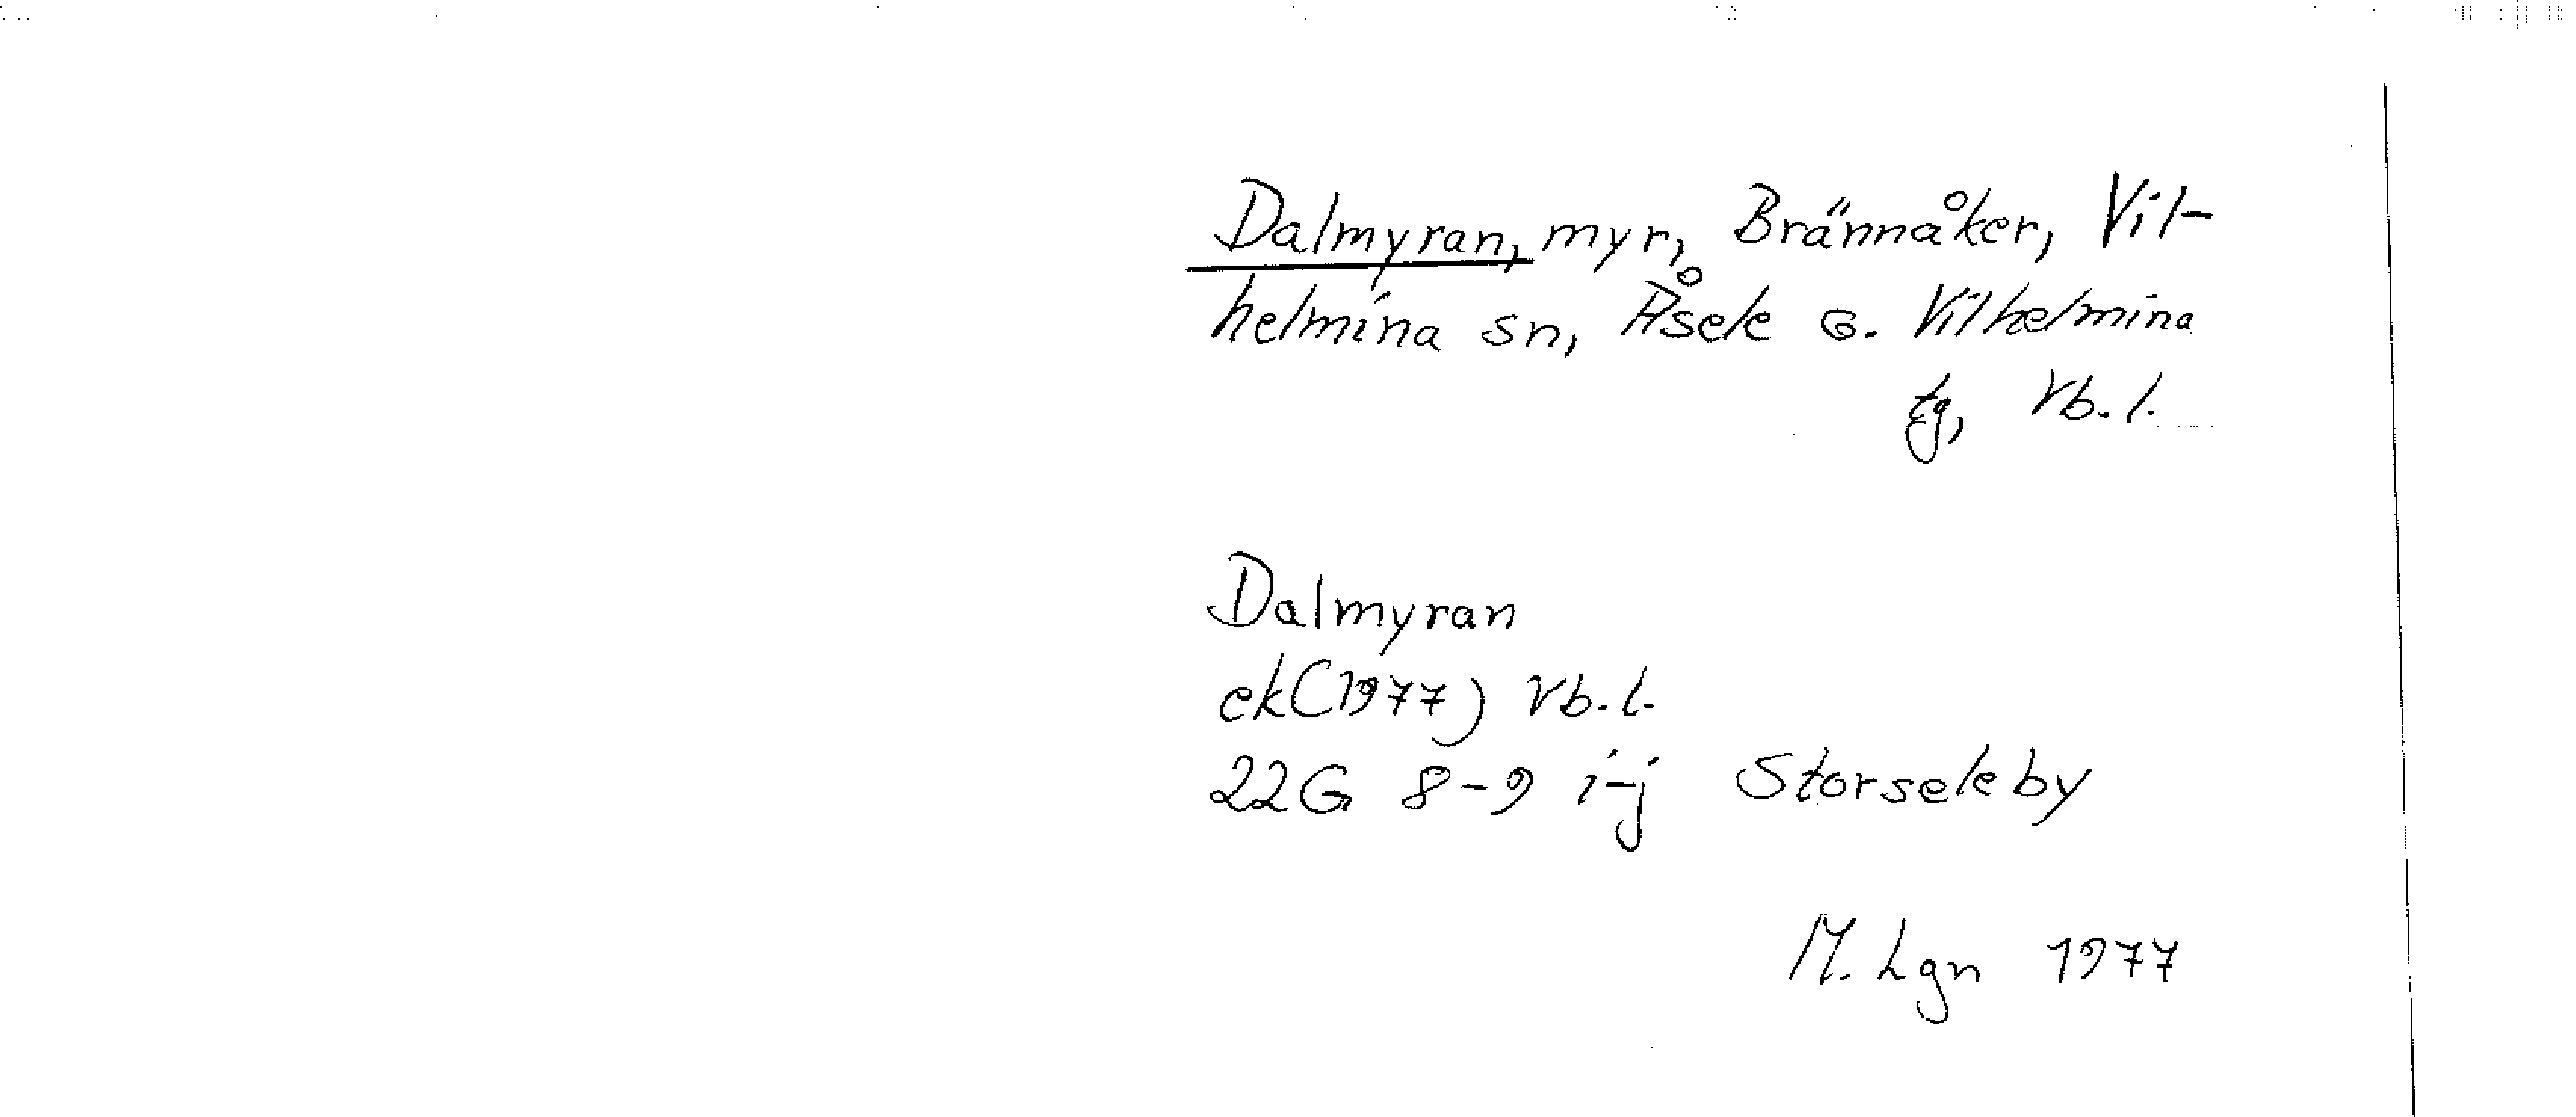 Dalmyran, myr, Brännåker, Vil-
helmina sn, Åsele o. Vilhelmina
tg, Vb. l.
Dalmyran
ek(1977) Vb. l.
22G 8-9 i-j Storseleby
M. Lgn 1977